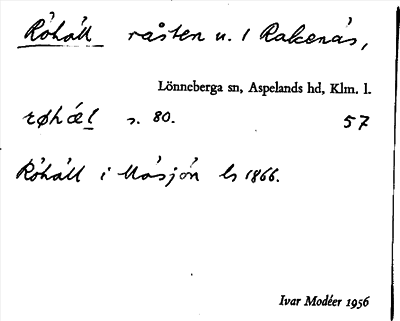 Röhäll råsten u. 1 Rakenäs,
Lönneberga sn, Aspelands hd, Klm. l.
røhæl s. 80. 57
Röhäll i Måsjön ls 1866.
Ivar Modéer 1956